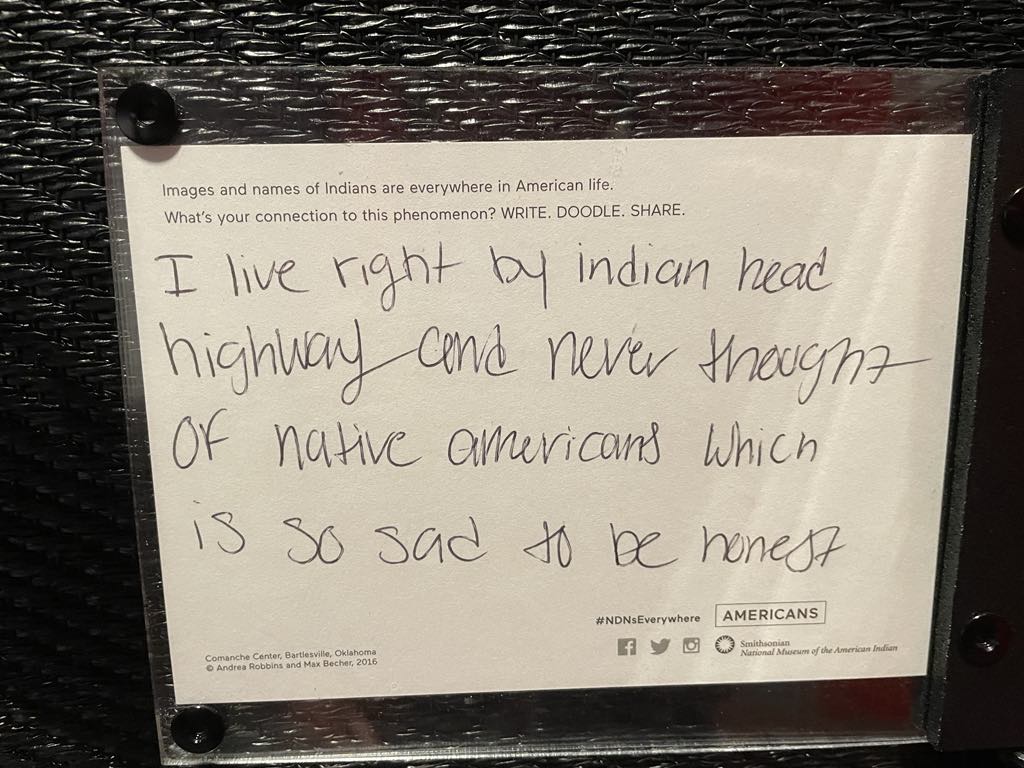 Images and names of Indians are everywhere in American life.
What's your connection to this phenomenon? WRITE. DOODLE. SHARE.
I live right by indian head
highway and never thought
of native americans which
is so sad to be honest
#NDNsEverywhere AMERICANS
Smithsonian
National Museum of the American Indian
Comanche Center, Bartlesville, Oklahoma
© Andrea Robbins and Max Becher, 2016